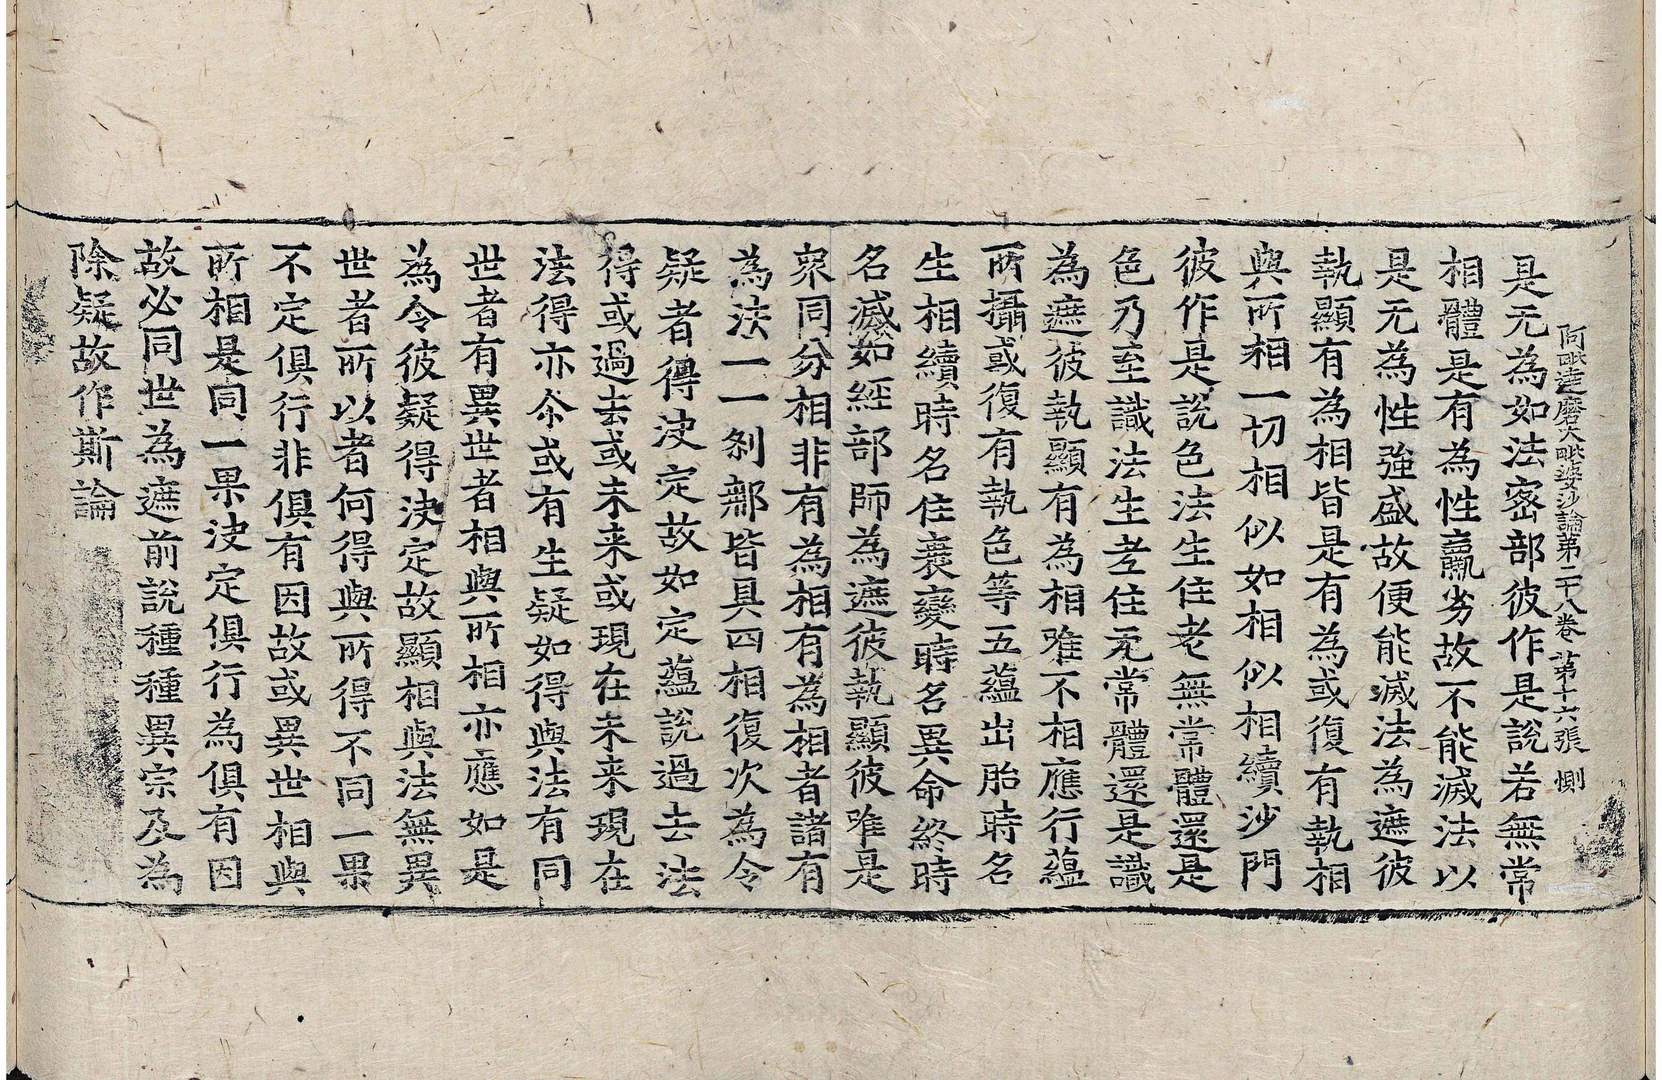 阿毗達磨大毗婆沙論第三十八卷 第十六張 惻
是无為如法密部彼作是說若無常
相體是有為性羸劣故不能滅法以
是无為性強盛故便能滅法為遮彼
執顯有為相皆是有為或復有執相
與所相一切相似如相似相續沙門
彼作是說色法生住老無常體還是
色乃至識法生老住无常體還是識
為遮彼執顯有為相唯不相應行蘊
所攝或復有執色等五蘊出胎時名
生相續時名住衰變時名異命終時
名滅如經部師為遮彼執顯彼唯是
衆同分相非有為相有為相者諸有
為法一一剎那皆具四相復次為令
疑者得決定故如定蘊說過去法
得或過去或未来或現在未来現在
法得亦尒或有生疑如得與法有同
世者有異世者相與所相亦應如是
為令彼疑得決定故顯相與法無異
世者所以者何得與所得不同一果
不定俱行非俱有因故或異世相與
所相是同一果決定俱行為俱有因
故必同世為遮前說種種異宗及為
除疑故作斯論